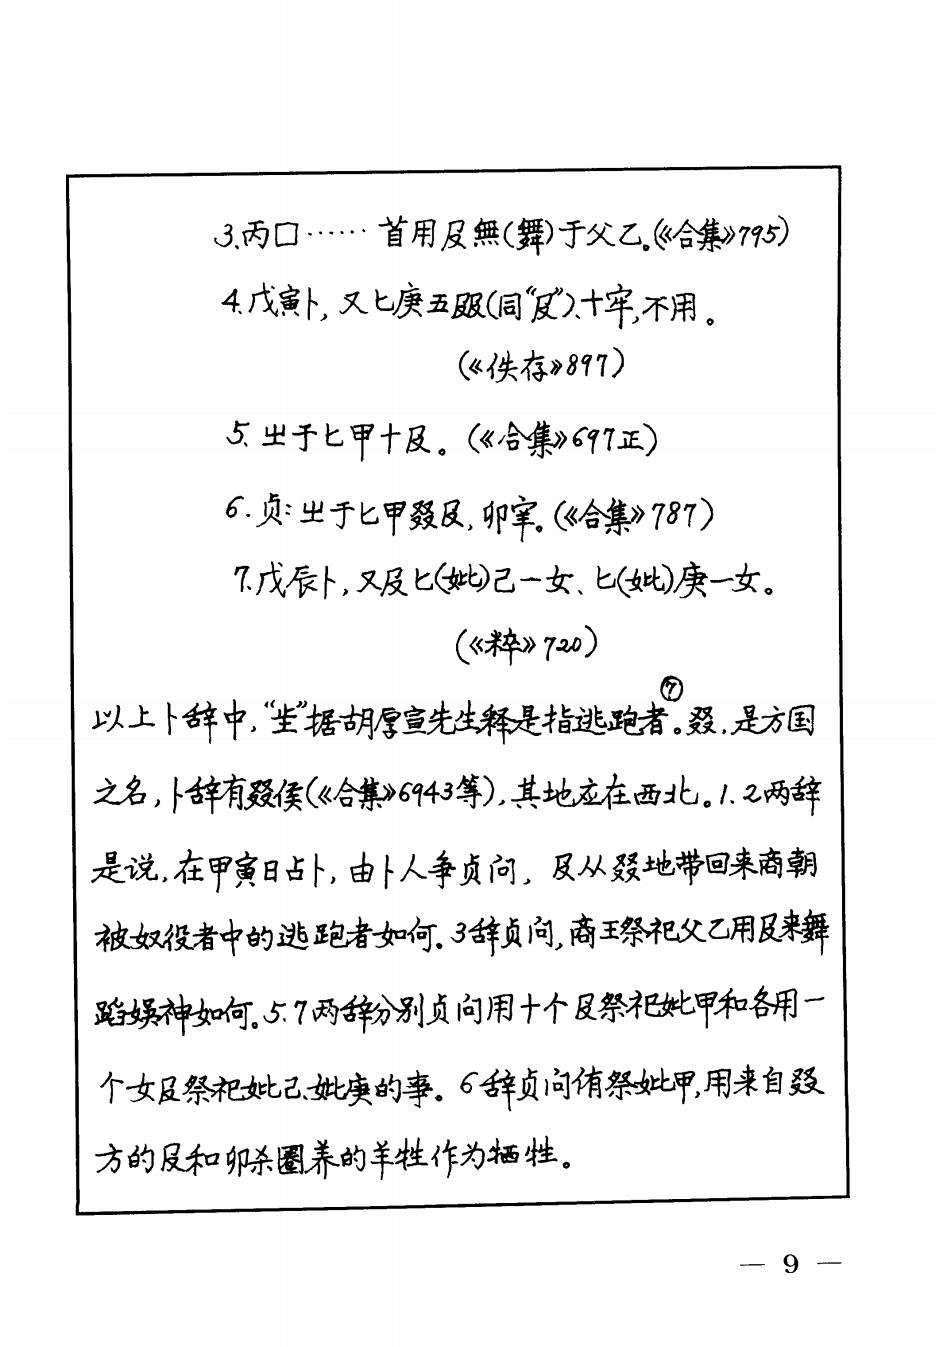 3.丙口……首用𠬝無(舞)于父乙。(《合集》795)
4.戊寅卜,又匕庚五𠬝(同“𠬝”)、十牢,不用。
(《佚存》897)
5.㞢于匕甲十𠬝。(《合集》697正)
6.贞:㞢于匕甲叕𠬝,卯窂。(《合集》787)
7.戊辰卜,又𠬝匕(妣)己一女、匕(妣)庚一女。
(《粹》720)
以上卜辞中,“㞷”据胡厚宣先生释是指逃跑者⑦。叕,是方国
之名,卜辞有叕侯(《合集》6943等),其地应在西北。1.2两辞
是说,在甲寅日占卜,由卜人争贞问,𠬝从叕地带回来商朝
被奴役者中的逃跑者如何。3辞贞问,商王祭祀父乙用𠬝来舞
蹈娱神如何。5.7两辞分别贞问用十个𠬝祭祀妣甲和各用一
个女𠬝祭祀妣己、妣庚的事。6辞贞问侑祭妣甲,用来自叕
方的𠬝和卯杀圈养的羊牲作为牺牲。
— 9 —